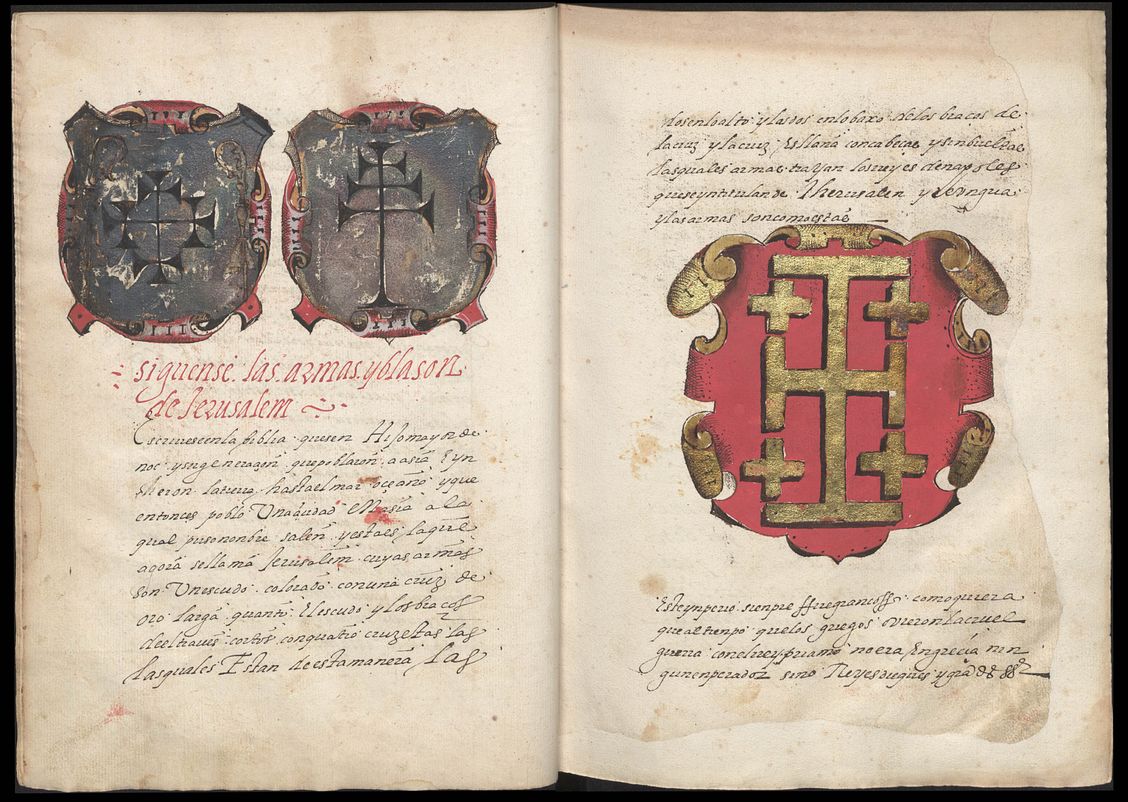 siguense. las. armas. y blason.
de Jerusalem
Escrivese en la biblia. que sen Hijo mayor de
noe y su generaçon. que poblaron. a asia Eyn
Heron la tierra. hasta el mar oçeano y que
entonces poblo Una çiudad a la
qual puso nonbre salen. y esta es la que
agora se llama Jerusalem. cuyas armas
son Un escudo. colorado con una cruz de
oro larga. quanto. El escudo y los braços
de el traves cortos con quatro cruzetas las
las quales Estan de esta manera las
dos en lo alto y las dos en lo baxo de los braços de
la cruz y la cruz. Es llana con cabeças y sin bueltas
las quales armas trayan los reyes de napoles
que se yntitulan de Iherusalen y de Vngria
y las armas son como estas
Este ynperio sienpre como quiera
que al tienpo que los griegos ovieron la cruel
guerra con el rey priamo no era En greçia nin
gun enperador sino Reyes